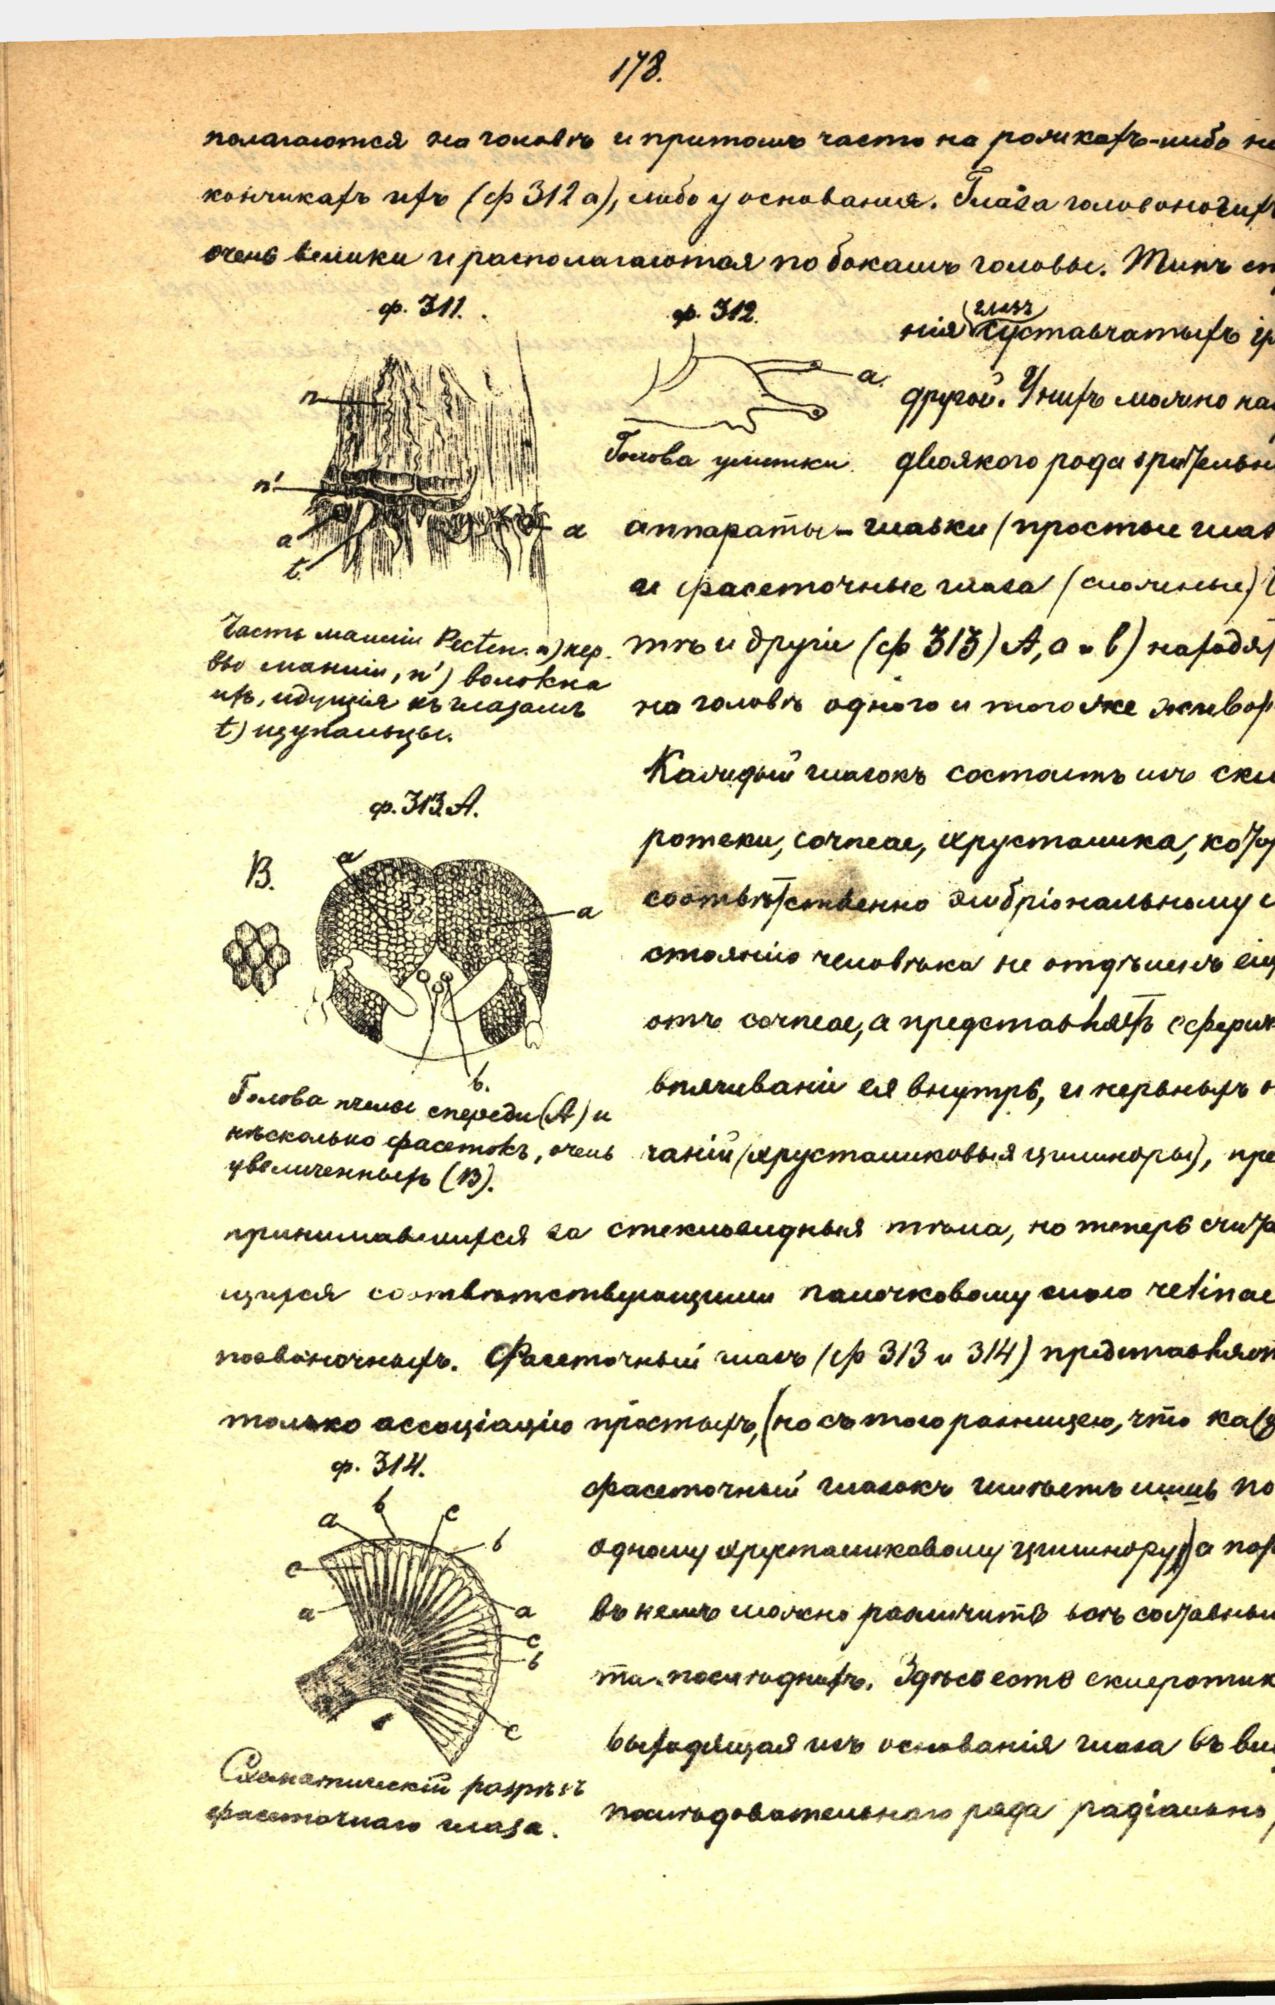 178.
полагаются на головѣ и притомъ часто на рожкахъ-либо на
кончикахъ ихъ (ф 312 а), либо у основанія. Глаза головоногихъ
очень велики и располагаются по бокамъ головы. Типъ ст
ф. 311.
n
n'
a
t.
a
Часть мантіи Pecten. n) нер-
вы мантіи, n') волокна
ихъ, идущія къ глазамъ
t) щупальцы.
ф. 312.
a.
Голова улитки.
нія глазъ суставчатыхъ
другой. У нихъ можно
двоякого рода зрительн
аппараты – глазки (простые глаз
и фасеточные глаза (сложные)
тѣ и другіе (ф 313) А, а и b) находят
на головѣ одного и того же живот
Каждый глазокъ состоитъ изъ скле
ротеки, corneae, хрусталика, котор
соотвѣтственно эмбріональному со
стоянію человѣка не отдѣленъ ещ
отъ corneae, а представляетъ сферич
впячиваніи ея внутрь, и нервныхъ о
чаній (хрусталиковыя цилиндры), пре
ф. 313 А.
В.
a
a
b.
Голова пчелы спереди (А) и
нѣсколько фасетокъ, очень
увеличенныхъ (В).
принимавшихся за стекловидныя тѣла, но теперь счита
щихся соотвѣтствующими палочковому слою retinae
позвоночныхъ. Фасеточный глазъ (ф 313 и 314) представляет
только ассоціацію простыхъ, (но съ тою разницею, что каж
ф. 314.
a
b
c
b
c
a
a
c
b
c
Схематическій разрѣзъ
фасеточнаго глаза.
фасеточный глазокъ имѣетъ лишь по
одному хрусталиковому цилиндру) а пот
въ немъ можно различить всѣ составныя
послѣднихъ. Здѣсь есть склеротик
выходящая изъ основанія глаза въ ви
послѣдовательнаго ряда радіально